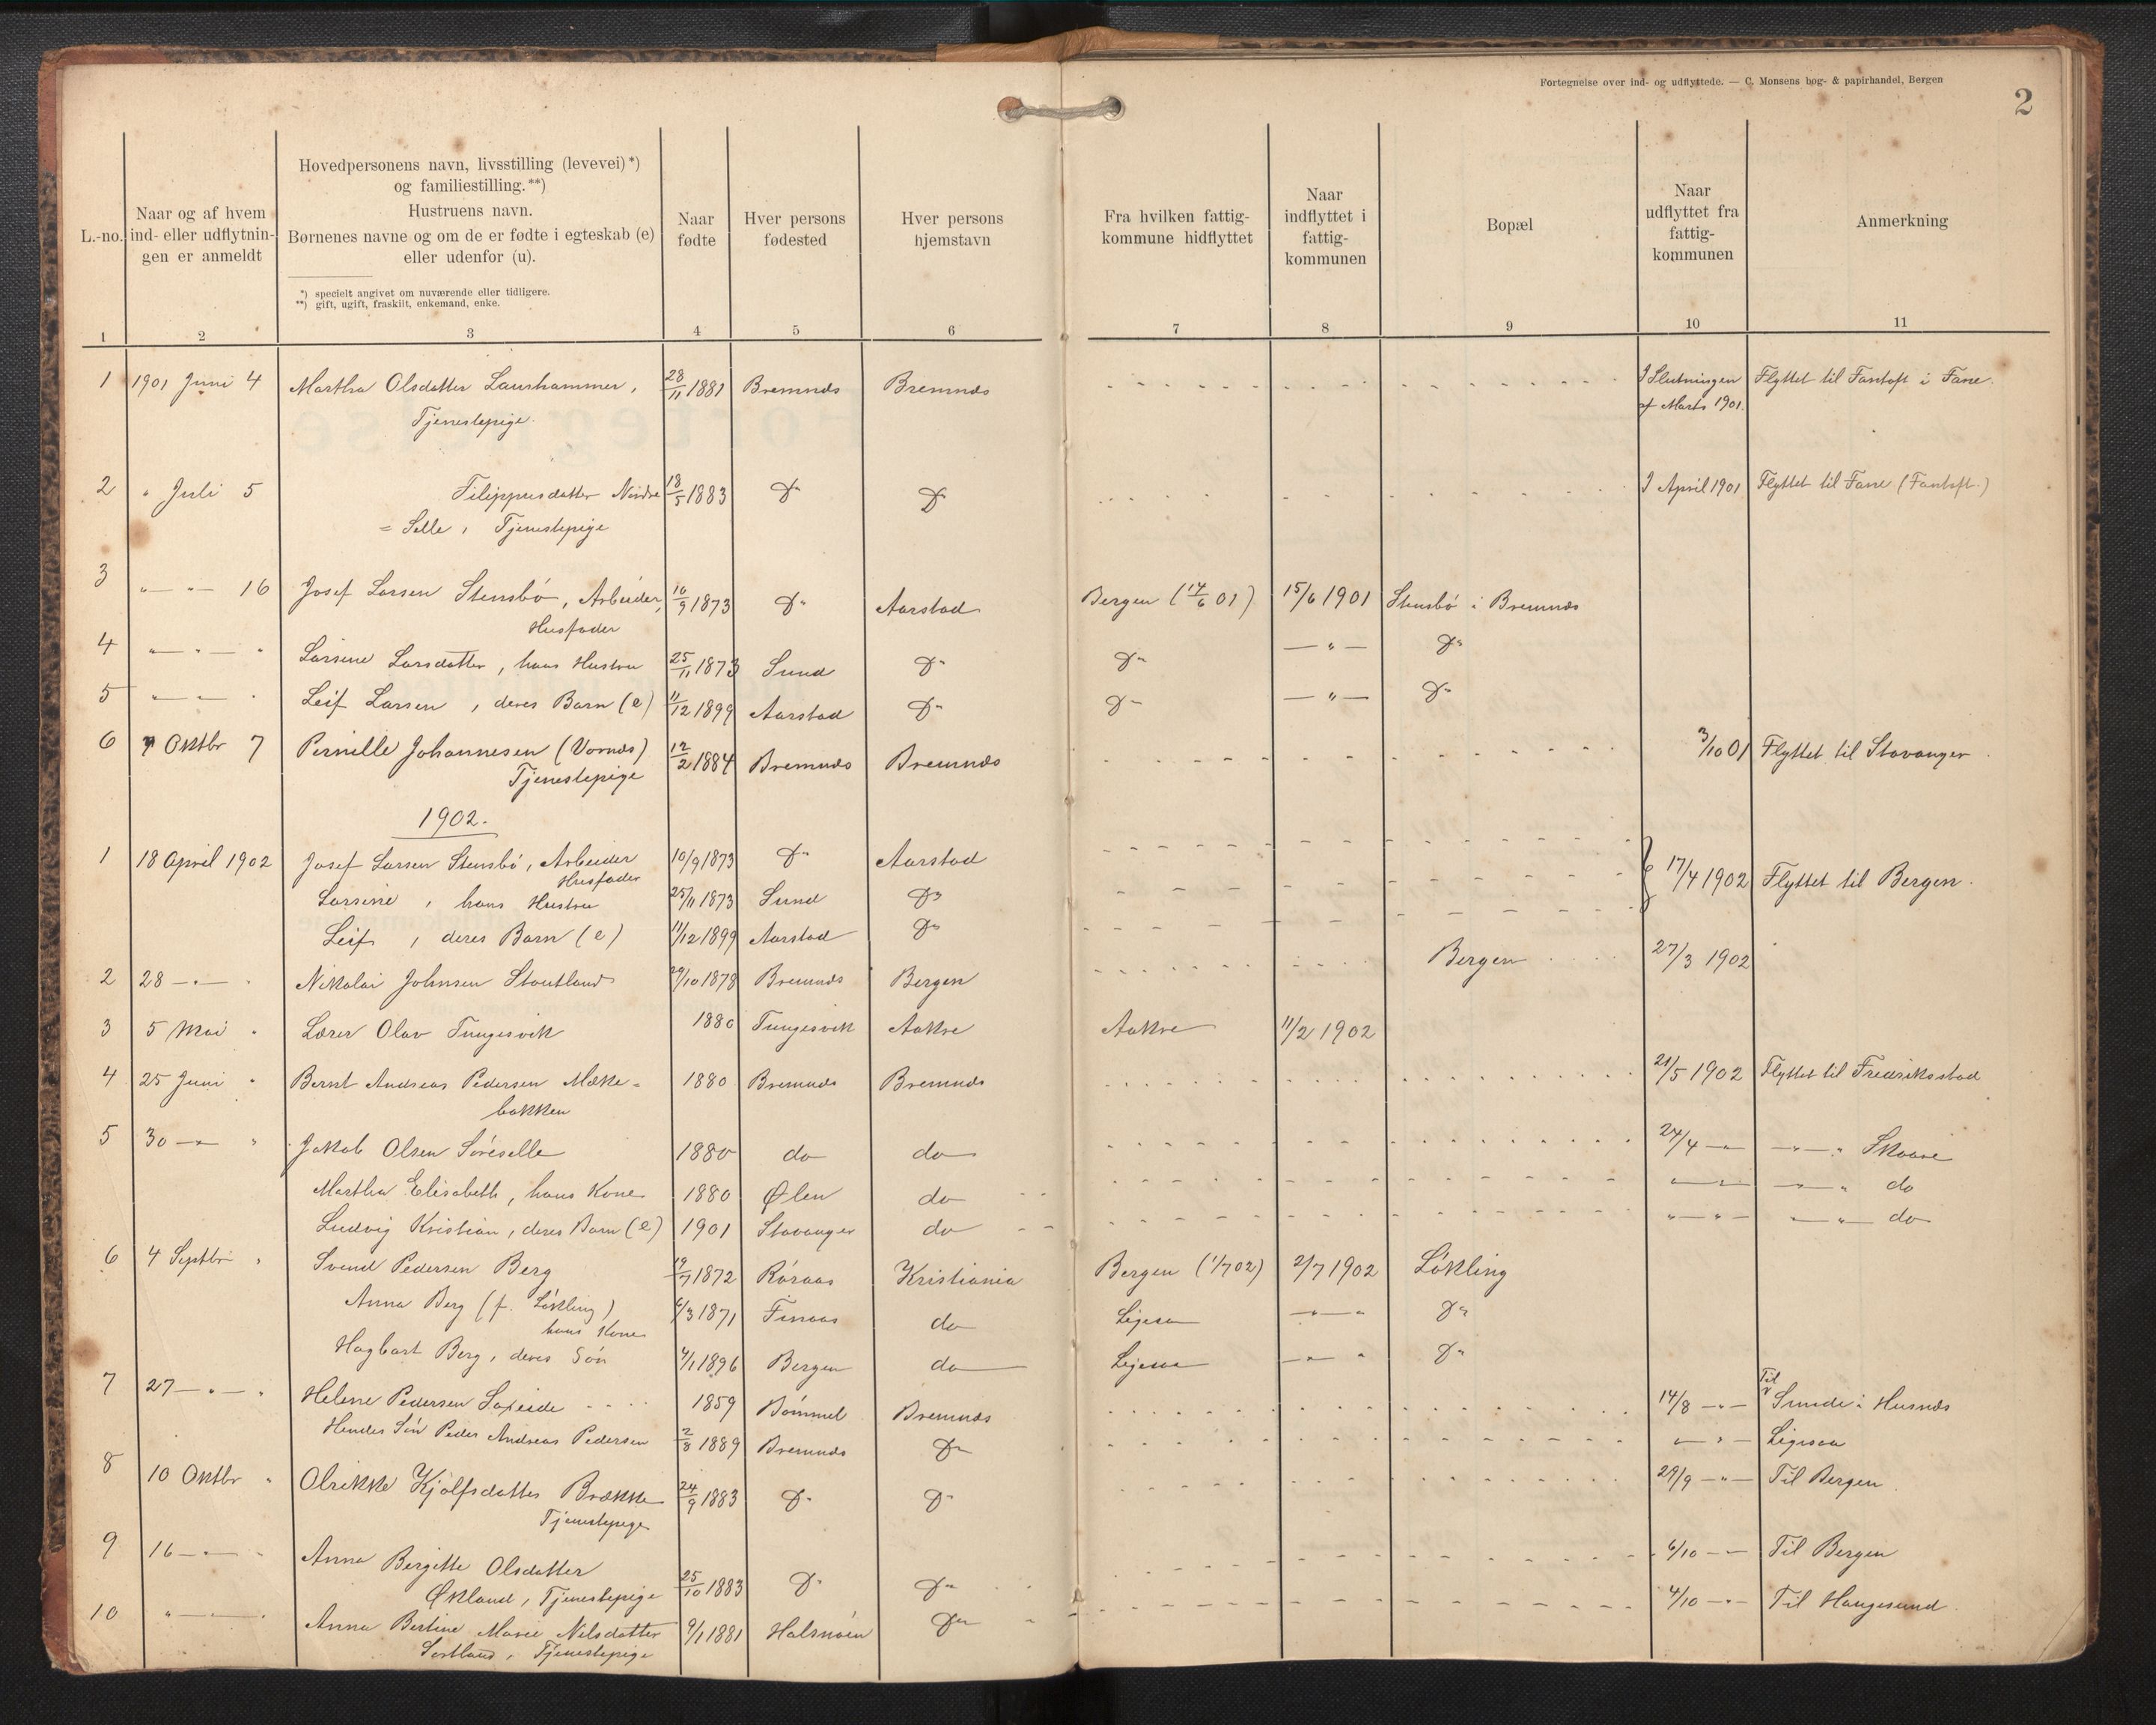 Fortegnelse over ind- og udflyttede. — C. Monsens bog- & papirhandel, Bergen
2
L.-no.
Naar og af hvem ind- eller udflytnin- gen er anmeldt
Hovedpersonens navn, livsstilling (levevei) *)
og familiestilling. **)
Hustruens navn.
Børnenes navne og om de er fødte i egteskab (e)
eller udenfor (u).
*) specielt angivet om nuværende eller tidligere.
**) gift, ugift, fraskilt, enkemand, enke.
Naar fødte
Hver persons fødested
Hver persons hjemstavn
Fra hvilken fattig- kommune hidflyttet
Naar indflyttet i fattig- kommunen
Bopæl
Naar udflyttet fra fattig- kommunen
Anmerkning
1 2 3 4 5 6 7 8 9 10 11
1 1901 Juni 4 Martha Olsdatter Laurhammer, 28/11 1881 Bremnæs Bremnæs I Slutningen Flyttet til Fantoft i Fane.
Tjenestepige. af Marts 1901.
2 " Juli 5 Filippusdatter Nordre 18/5 1883 Do Do I April 1901 Flyttet til Fane (Fantoft.)
= Selle, Tjenestepige
3 " — " — 16 Josef Larsen Stensbö, Arbeider, 10/9 1873 Do Aarstad Bergen (14/6 01) 15/6 1901 Stensbö i Bremnæs
Husfader
4 " — " — " Larsine Larsdatter, hans Hustru 25/11 1873 Sund Do Do — " — Do
5 " — " — " Leif Larsen, deres Barn (e) 11/12 1899 Aarstad Do Do — " — Do
6 " Oktbr 7 Pernille Johannesen (Vornæs) 12/2 1884 Bremnæs Bremnæs 3/10 01 Flyttet til Stavanger
Tjenestepige
1902.
1 18 April 1902 Josef Larsen Stensbö, Arbeider 10/9 1873 Do Aarstad
Husfader
17/4 1902 Flyttet til Bergen.
Larsine, hans Hustru 25/11 1873 Sund Do
Leif, deres Barn (e) 11/12 1899 Aarstad Do
2 28 — " — " Nikolai Johnsen Stoutland 29/10 1878 Bremnæs Bergen Bergen 27/3 1902
3 5 Mai " Lærer Olav Tungesvik 1880 Tungesvik Aakre Aakre 11/2 1902
4 25 Juni " Bernt Andreas Pedersen Mæke= 1880 Bremnæs Bremnæs 21/5 1902 Flyttet til Fredriksstad
bakken
5 30 — " — " Jakob Olsen Söreselle 1880 do do 24/4 — " — " — " Skaare
Martha Elisabeth, hans Kone 1880 Ølen do " — " — " do
Ludvig Kristian, deres Barn (e) 1901 Stavanger do " — " — " — " — do
6 4 Septbr " Svend Pedersen Berg 19/7 1872 Röraas Kristiania Bergen (1/7 02) 2/7 1902 Lökling
Anna Berg (f. Lökling) 6/3 1871 Finaas do Ligesaa — " — " Do
hans Kone
Hagbart Berg, deres Sön 4/1 1896 Bergen do Ligesaa — " — " Do
7 27 — " — " Helene Pedersen 1859 Bömmel Bremnæs 14/8 — " — Til Sunde i Husnæs
Hendes Sön Peder Andreas Pedersen 2/8 1889 Bremnæs Do — " — Ligesaa
8 10 Oktbr " Olrikke Kjölfsdatter Brække 24/9 1883 Do Do 29/9 — " — Til Bergen
Tjenestepige
9 16 — " — " Anna Bergitte Olsdatter 6/10 — " — Til Bergen
Økland, Tjenestepige 25/10 1883 Do Do
10 " — " — " Anna Bertine Marie Nilsdatter 9/1 1881 Halsnöen Do 4/10 — " — Til Haugesund
Sortland, Tjenestepige